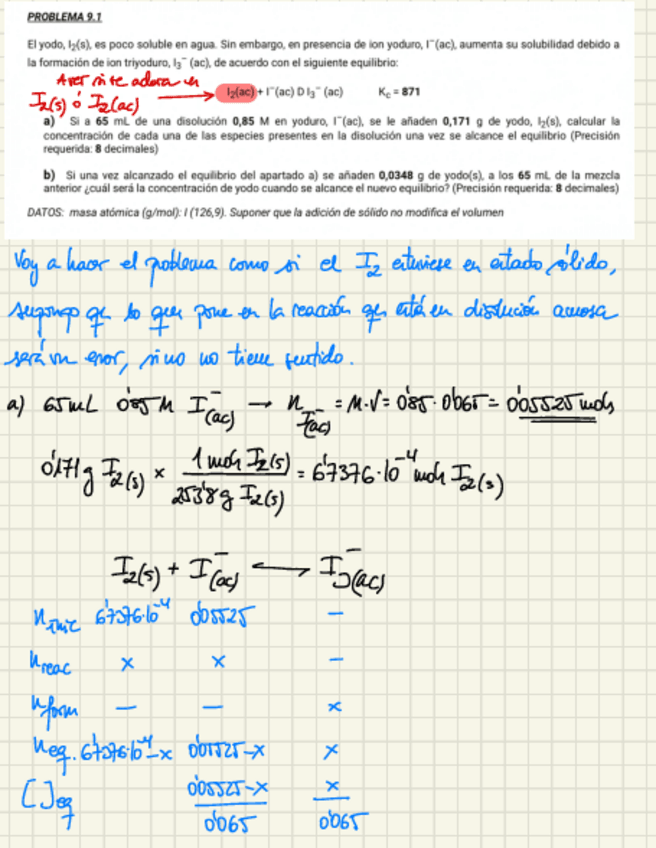 PROBLEMA 9.1
El yodo, I₂(s), es poco soluble en agua. Sin embargo, en presencia de ion yoduro, I⁻(ac), aumenta su solubilidad debido a
la formación de ion triyoduro, I₃⁻ (ac), de acuerdo con el siguiente equilibrio:
A ver si te aclaras en
I₂(s) ó I₂(ac)
I₂(ac) + I⁻(ac) D I₃⁻ (ac) K꜀ = 871
a) Si a 65 mL de una disolución 0,85 M en yoduro, I⁻(ac), se le añaden 0,171 g de yodo, I₂(s), calcular la
concentración de cada una de las especies presentes en la disolución una vez se alcance el equilibrio (Precisión
requerida: 8 decimales)
b) Si una vez alcanzado el equilibrio del apartado a) se añaden 0,0348 g de yodo(s), a los 65 mL de la mezcla
anterior ¿cuál será la concentración de yodo cuando se alcance el nuevo equilibrio? (Precisión requerida: 8 decimales)
DATOS: masa atómica (g/mol): I (126,9). Suponer que la adición de sólido no modifica el volumen
Voy a hacer el problema como si el I₂ estuviese en estado sólido,
supongo q lo que pone en la reacción q está en disolución acuosa
será un error, si no no tiene sentido.
a) 65 mL 0'85 M I⁻(ac) → n I⁻(ac) = M·V = 0'85 · 0'065 = 0'05525 moles
0'171 g I₂(s) × 1 mol I₂(s) / 253'8 g I₂(s) = 6'7376·10⁻⁴ moles I₂(s)
I₂(s) + I⁻(ac) ⟷ I₃⁻(ac)
n inic 6'7376·10⁻⁴ 0'05525 –
n reac x x –
n form – – x
n eq. 6'7376·10⁻⁴-x 0'05525-x x
[ ]eq 0'05525-x / 0'065 x / 0'065